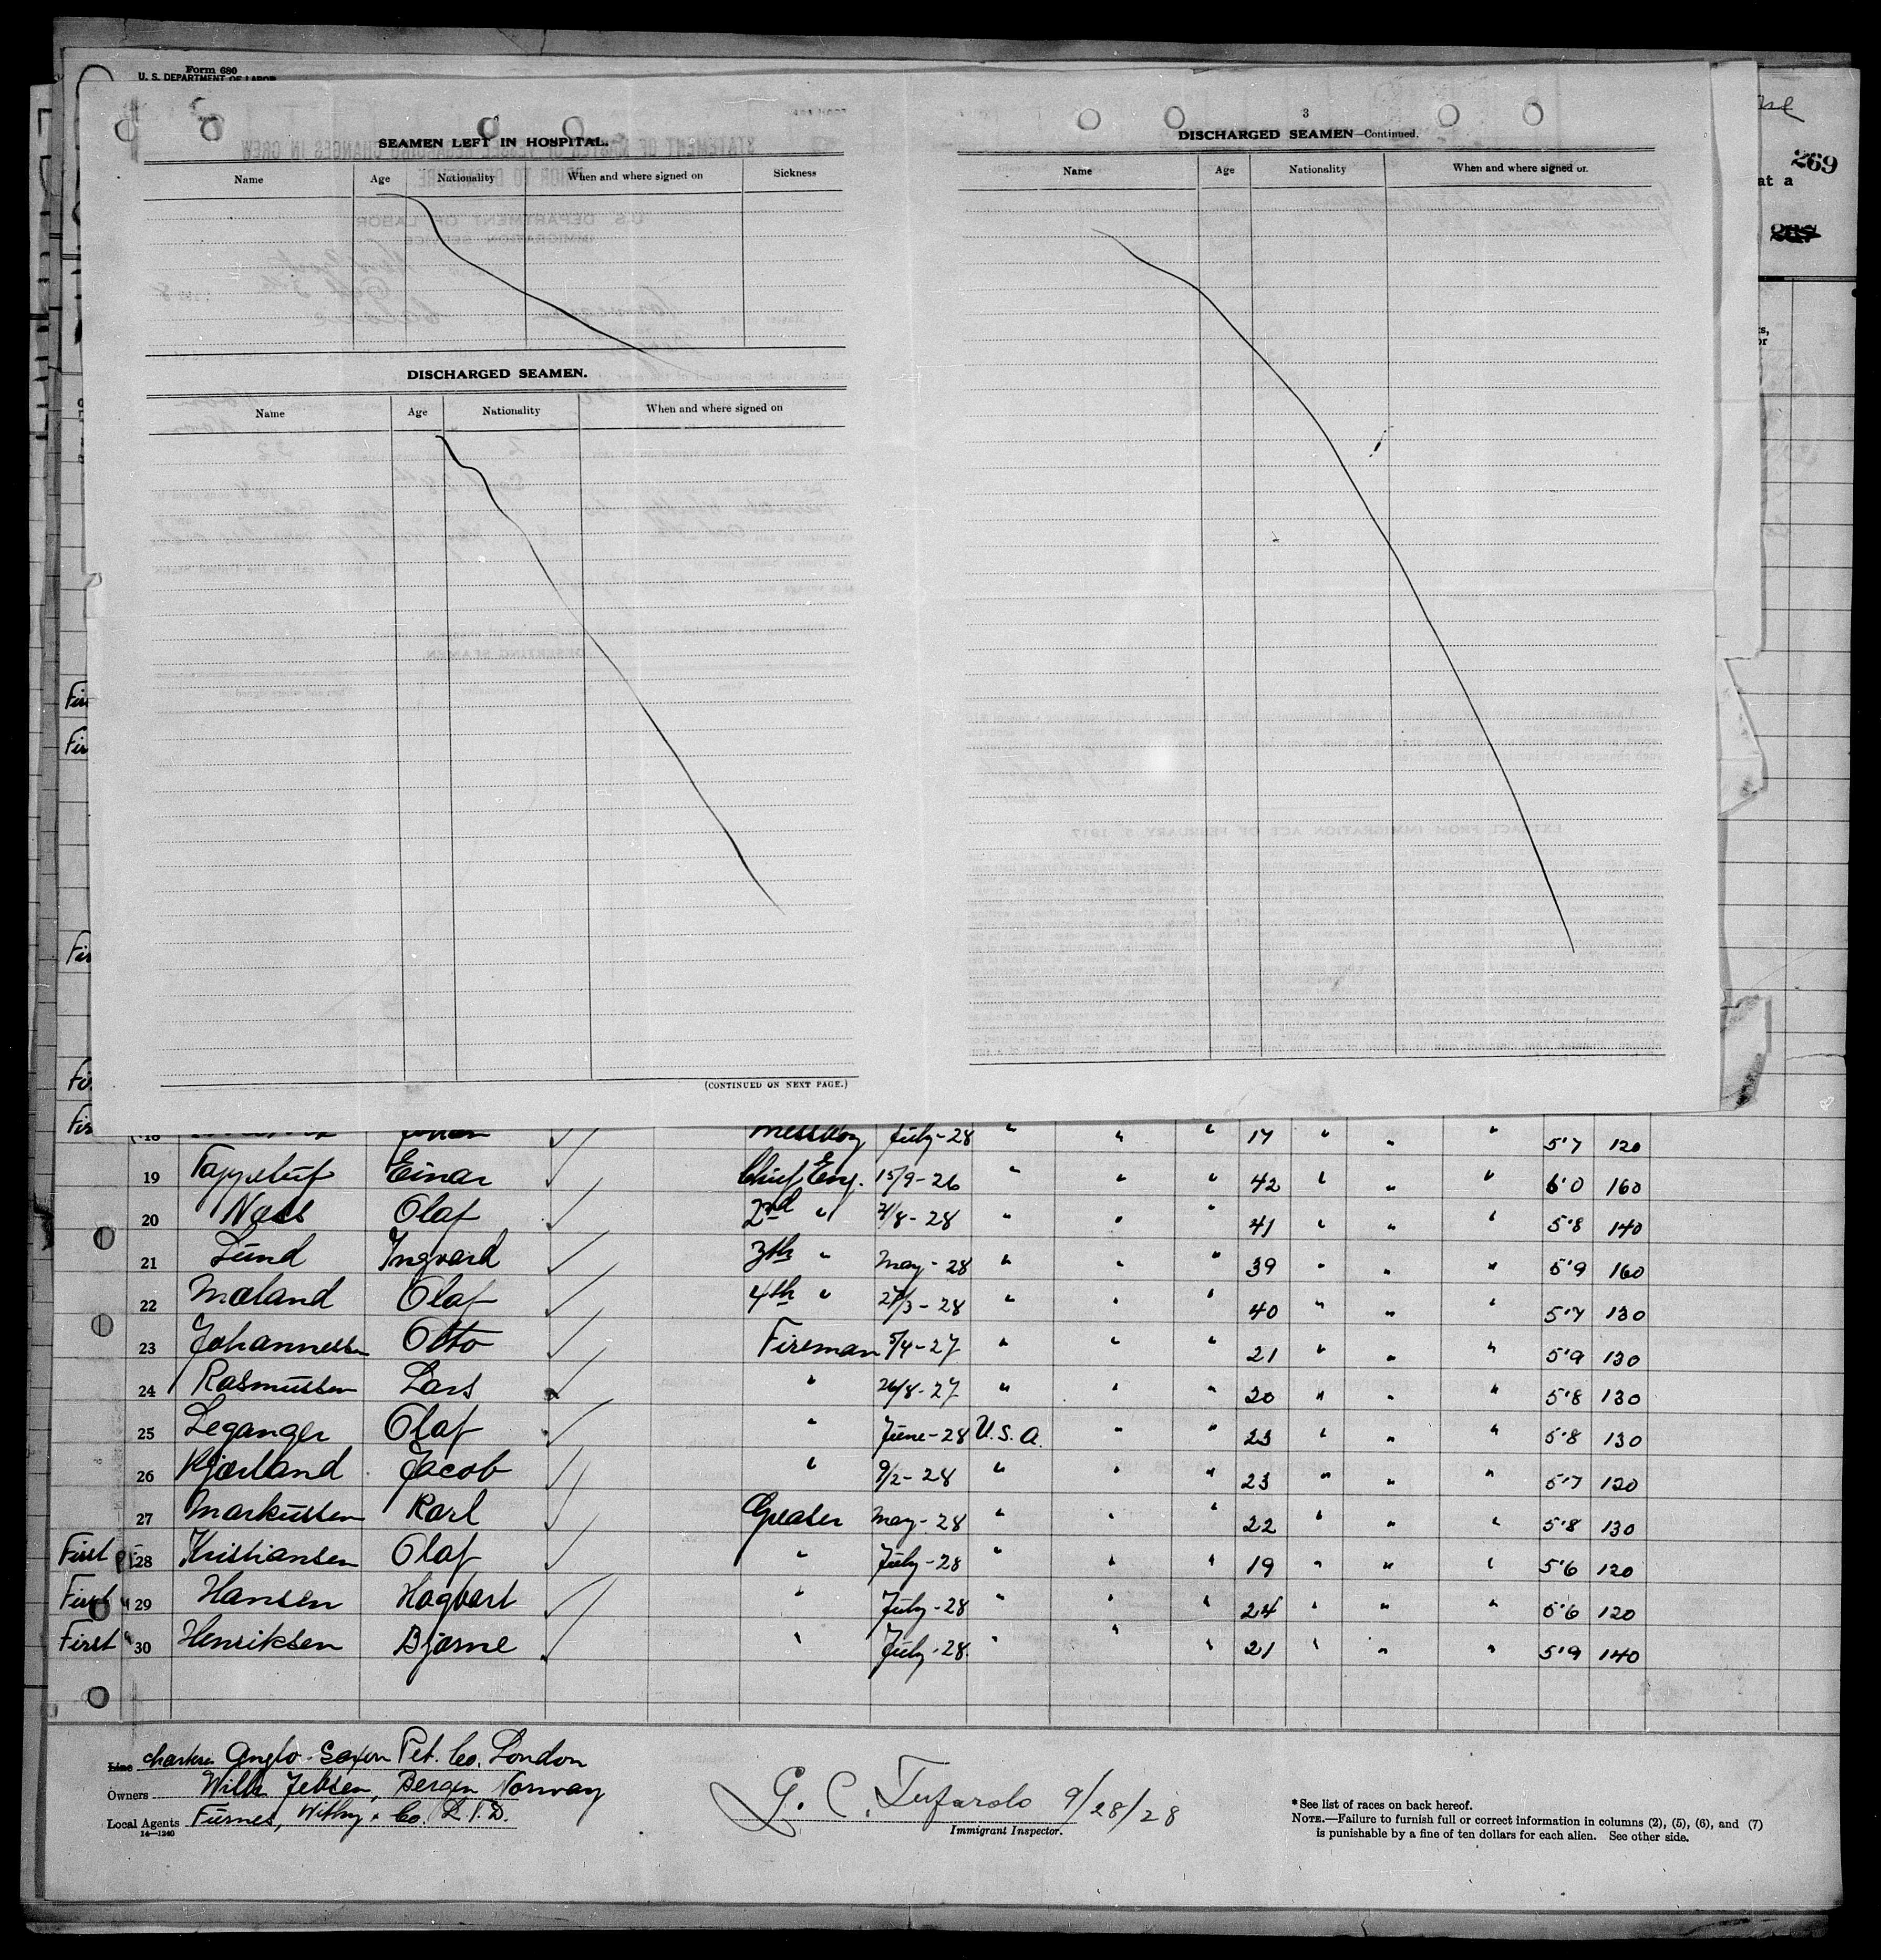 Form 680
U. S. DEPARTMENT OF LABOR
269
at a
SEAMEN LEFT IN HOSPITAL.
Name Age Nationality When and where signed on Sickness
DISCHARGED SEAMEN.
Name Age Nationality When and where signed on
(CONTINUED ON NEXT PAGE.)
3
DISCHARGED SEAMEN—Continued.
Name Age Nationality When and where signed on
18 Messboy July-28 " " " 17 " " " 5'7 120
19 Einar Chief Eng. 15/9-26 " " " 42 " " " 6'0 160
20 Ness Olaf 2nd " /8-28 " " " 41 " " " 5'8 140
21 Lund Ingvard 3th " May-28 " " " 39 " " " 5'9 160
22 Mæland Olaf 4th " 27/3-28 " " " 40 " " " 5'7 130
23 Johannessen Otto Fireman 5/4-27 " " " 21 " " " 5'9 130
24 Rasmussen Lars " 26/8-27 " " " 20 " " " 5'8 130
25 Leganger Olaf " June-28 U.S.A. " " 23 " " " 5'8 130
26 Kjærland Jacob " 9/2-28 " " " 23 " " " 5'7 120
27 Markussen Karl Greaser May-28 " " " 22 " " " 5'8 130
First 28 Kristiansen Olaf " July-28 " " " 19 " " " 5'6 120
First " 29 Hansen Hagbart " July-28 " " " 24 " " " 5'6 120
First " 30 Henriksen Bjarne " July-28. " " " 21 " " " 5'9 140
Line Charters Anglo-Saxon Pet. Co. London
Owners Wilh. Jebsen, Bergen Norway
Local Agents Furnes, Withy & Co. L.T.D.
14—1240
G. C. Tufarolo 9/28/28
Immigrant Inspector.
*See list of races on back hereof.
NOTE.—Failure to furnish full or correct information in columns (2), (5), (6), and (7)
is punishable by a fine of ten dollars for each alien. See other side.